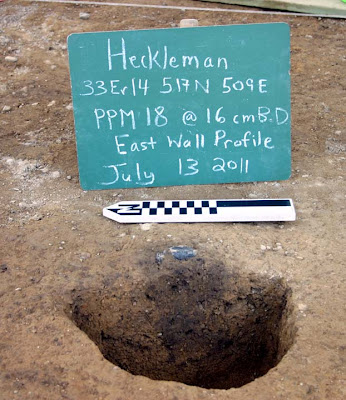 Heckleman
33Er14 517N 509E
PPM 18 @ 16 cmB.D
East Wall Profile
July 13 2011